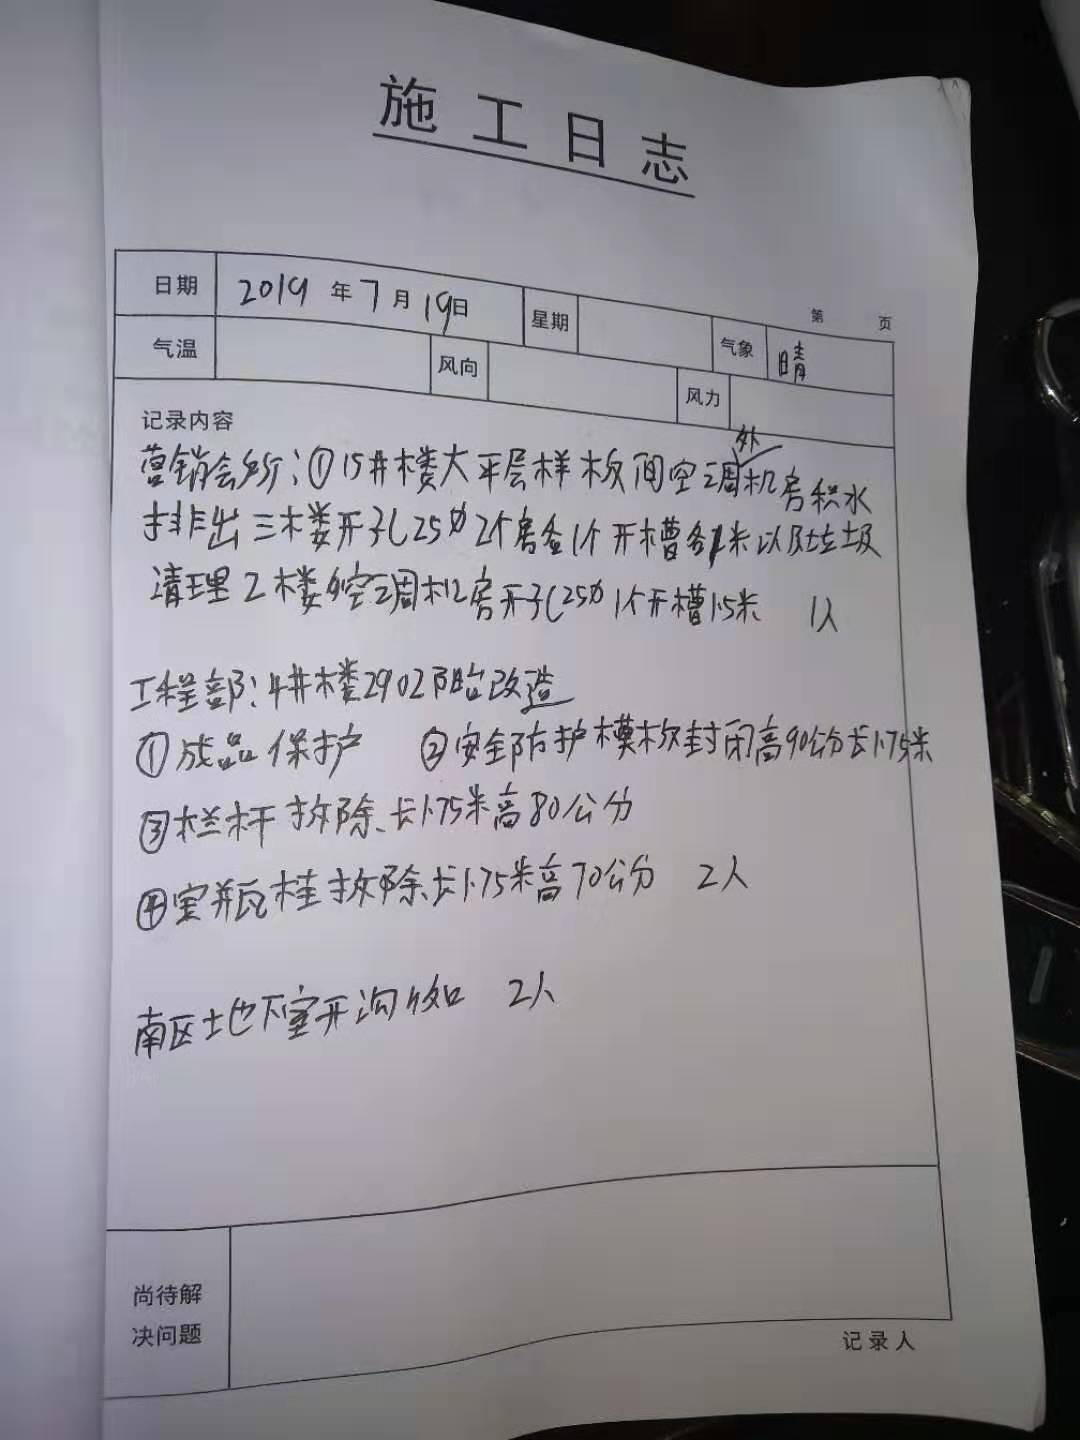 施工日志
第 页
日期 2019年7月19日 星期 气象 晴
气温 风向 风力
记录内容
营销会所:①15#楼大平层样板间空调外机房积水
排出三楼开孔25的2个房各1个开槽各1米以及垃圾
清理2楼空调机房开孔25的1个开槽1.5米 1人
工程部:4#楼2902阳台改造
①成品保护 ②安全防护模板封闭高90公分长1.75米
③栏杆拆除、长1.75米高80公分
④宝瓶柱拆除长1.75米高70公分 2人
南区地下室开沟 2人
尚待解
决问题
记录人